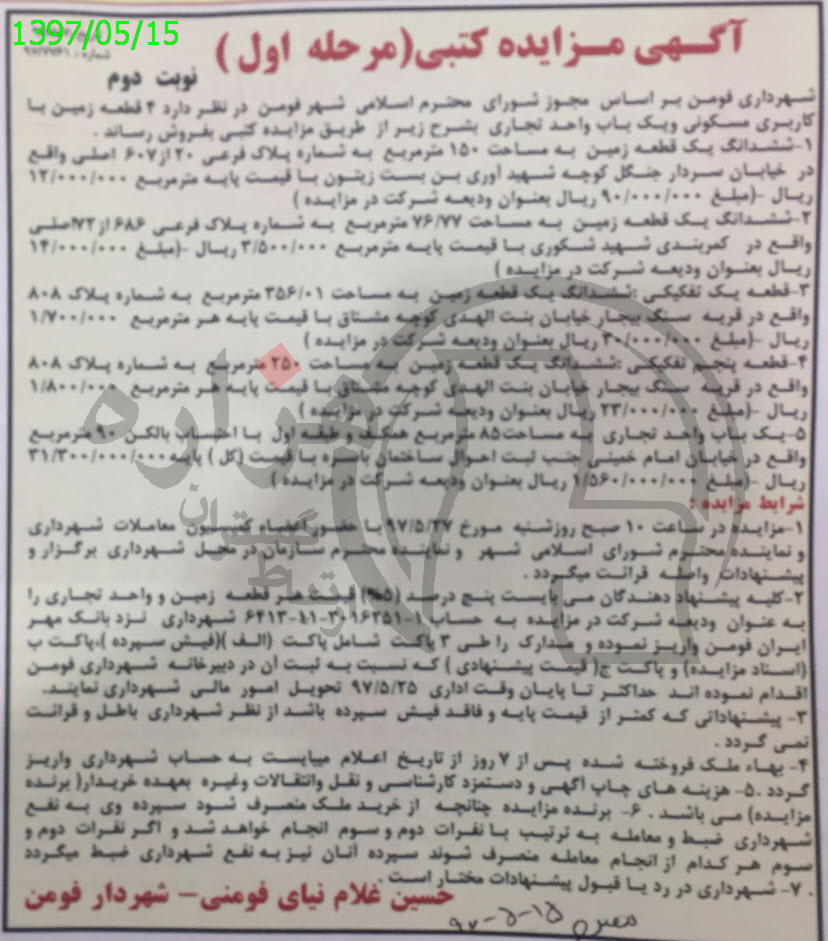 1397/05/15
آگهی مزایده کتبی(مرحله اول)
نوبت دوم
شهرداری فومن بر اساس مجوز شورای محترم اسلامی شهر فومن در نظر دارد ۴ قطعه زمین با
کاربری مسکونی ویک باب واحد تجاری بشرح زیر از طریق مزایده کتبی بفروش رساند .
۱-ششدانگ یک قطعه زمین به مساحت ۱۵۰ مترمربع به شماره پلاک فرعی ۲۰ از۶۰۷ اصلی واقع
در خیابان سردار جنگل کوچه شهید آوری بن بست زیتون با قیمت پایه مترمربع ۱۲/۰۰۰/۰۰۰
ریال -(مبلغ ۹۰/۰۰۰/۰۰۰ ریال بعنوان ودیعه شرکت در مزایده )
۲-ششدانگ یک قطعه زمین به مساحت ۷۶/۷۷ مترمربع به شماره پلاک فرعی ۶۸۶ از۷۲اصلی
واقع در کمربندی شهید شکوری با قیمت پایه مترمربع ۳/۵۰۰/۰۰۰ ریال -(مبلغ ۱۴/۰۰۰/۰۰۰
ریال بعنوان ودیعه شرکت در مزایده )
۳-قطعه یک تفکیکی :ششدانگ یک قطعه زمین به مساحت ۳۵۶/۰۱ مترمربع به شماره پلاک ۸۰۸
واقع در قریه سنگ بیجار خیابان بنت الهدی کوچه مشتاق با قیمت پایه هر مترمربع ۱/۷۰۰/۰۰۰
ریال -(مبلغ ۳۰/۰۰۰/۰۰۰ ریال بعنوان ودیعه شرکت در مزایده )
۴-قطعه پنجم تفکیکی :ششدانگ یک قطعه زمین به مساحت ۲۵۰ مترمربع به شماره پلاک ۸۰۸
واقع در قریه سنگ بیجار خیابان بنت الهدی کوچه مشتاق با قیمت پایه هر مترمربع ۱/۸۰۰/۰۰۰
ریال -(مبلغ ۲۳/۰۰۰/۰۰۰ ریال بعنوان ودیعه شرکت در مزایده )
۵-یک باب واحد تجاری به مساحت۸۵ مترمربع همکف و طبقه اول با احتساب بالکن ۹۰ مترمربع
واقع در خیابان امام خمینی جنب ثبت احوال ساختمان باسره با قیمت (کل ) پایه ۳۱/۳۰۰/۰۰۰/۰۰۰
ریال -(مبلغ ۱/۵۶۰/۰۰۰/۰۰۰ ریال بعنوان ودیعه شرکت در مزایده )
شرایط مزایده :
۱-مزایده در ساعت ۱۰ صبح روزشنبه مورخ ۹۷/۵/۲۷ با حضور اعضاء کمیسیون معاملات شهرداری
و نماینده محترم شورای اسلامی شهر و نماینده محترم سازمان در محل شهرداری برگزار و
پیشنهادات واصله قرائت میگردد .
۲-کلیه پیشنهاد دهندگان می بایست پنج درصد (۵%) قیمت هر قطعه زمین و واحد تجاری را
به عنوان ودیعه شرکت در مزایده به حساب ۱-۳۰۱۶۳۵۱-۱۱-۶۴۱۳ شهرداری نزد بانک مهر
ایران فومن واریز نموده و مدارک را طی ۳ پاکت شامل پاکت (الف )(فیش سپرده )،پاکت ب
(اسناد مزایده) و پاکت ج( قیمت پیشنهادی ) که نسبت به ثبت آن در دبیرخانه شهرداری فومن
اقدام نموده اند حداکثر تا پایان وقت اداری ۹۷/۵/۲۵ تحویل امور مالی شهرداری نمایند.
۳- پیشنهاداتی که کمتر از قیمت پایه و فاقد فیش سپرده باشد از نظر شهرداری باطل و قرائت
نمی گردد .
۴- بهاء ملک فروخته شده پس از ۷ روز از تاریخ اعلام میبایست به حساب شهرداری واریز
گردد .۵- هزینه های چاپ آگهی و دستمزد کارشناسی و نقل وانتقالات وغیره بعهده خریدار( برنده
مزایده) می باشد . ۶- برنده مزایده چنانچه از خرید ملک منصرف شود سپرده وی به نفع
شهرداری ضبط و معامله به ترتیب با نفرات دوم و سوم انجام خواهد شد و اگر نفرات دوم و
سوم هر کدام از انجام معامله منصرف شوند سپرده آنان نیز به نفع شهرداری ضبط میگردد
. ۷- شهرداری در رد یا قبول پیشنهادات مختار است .
حسین غلام نیای فومنی- شهردار فومن
۹۷-۵-۱۵